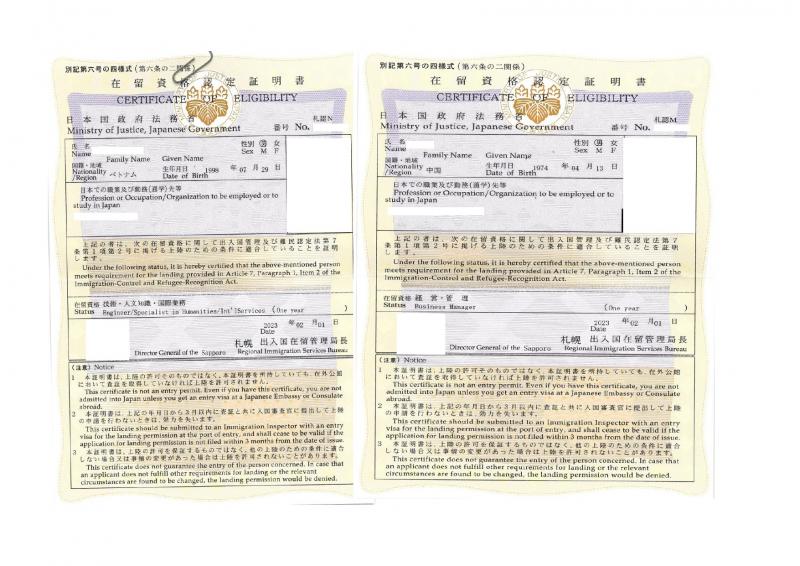 別記第六号の四様式(第六条の二関係)
在留資格認定証明書
CERTIFICATE OF ELIGIBILITY
日本国政府法務省
札認N
Ministry of Justice, Japanese Government
番号 No.
氏名
Name
Family Name Given Name
性別 男 女
Sex M F
国籍・地域
Nationality
/Region
ベトナム
生年月日 1998 年 07 月 29 日
Date of Birth
日本での職業及び勤務(通学)先等
Profession or Occupation/Organization to be employed or to
study in Japan
上記の者は、次の在留資格に関して出入国管理及び難民認定法第7
条第1項第2号に掲げる上陸のための条件に適合していることを証明
します。
Under the following status, it is hereby certified that the above-mentioned person
meets requirement for the landing provided in Article 7, Paragraph 1, Item 2 of the
Immigration-Control and Refugee-Recognition Act.
在留資格 技術・人文知識・国際業務
Status Engineer/Specialist in Humanities/Int'lServices (One year )
2023 年 02 月 01 日
Date
札幌 出入国在留管理局長
Director General of the Sapporo Regional Immigration Services Bureau
(注意) Notice
1 本証明書は、上陸の許可そのものではなく、本証明書を所持していても、在外公館
において査証を取得していなければ上陸を許可されません。
This certificate is not an entry permit. Even if you have this certificate, you are not
admitted into Japan unless you get an entry visa at a Japanese Embassy or Consulate
abroad.
2 本証明書は、上記の年月日から3月以内に査証と共に入国審査官に提出して上陸
の申請を行わないときは、効力を失います。
This certificate should be submitted to an Immigration Inspector with an entry
visa for the landing permission at the port of entry, and shall cease to be valid if the
application for landing permission is not filed within 3 months from the date of issue.
3 本証明書は、上陸の許可を保証するものではなく、他の上陸のための条件に適合
しない場合又は事情の変更があった場合は上陸を許可されないことがあります。
This certificate does not guarantee the entry of the person concerned. In case that
an applicant does not fulfill other requirements for landing or the relevant
circumstances are found to be changed, the landing permission would be denied.
別記第六号の四様式(第六条の二関係)
在留資格認定証明書
CERTIFICATE OF ELIGIBILITY
日本国政府法務省
札認M
Ministry of Justice, Japanese Government
番号 No.
氏名
Name
Family Name Given Name
性別 男 女
Sex M F
国籍・地域
Nationality
/Region
中国
生年月日 1974 年 04 月 13 日
Date of Birth
日本での職業及び勤務(通学)先等
Profession or Occupation/Organization to be employed or to
study in Japan
上記の者は、次の在留資格に関して出入国管理及び難民認定法第7
条第1項第2号に掲げる上陸のための条件に適合していることを証明
します。
Under the following status, it is hereby certified that the above-mentioned person
meets requirement for the landing provided in Article 7, Paragraph 1, Item 2 of the
Immigration-Control and Refugee-Recognition Act.
在留資格 経営・管理
Status Business Manager (One year )
2023 年 02 月 01 日
Date
札幌 出入国在留管理局長
Director General of the Sapporo Regional Immigration Services Bureau
(注意) Notice
1 本証明書は、上陸の許可そのものではなく、本証明書を所持していても、在外公館
において査証を取得していなければ上陸を許可されません。
This certificate is not an entry permit. Even if you have this certificate, you are not
admitted into Japan unless you get an entry visa at a Japanese Embassy or Consulate
abroad.
2 本証明書は、上記の年月日から3月以内に査証と共に入国審査官に提出して上陸
の申請を行わないときは、効力を失います。
This certificate should be submitted to an Immigration Inspector with an entry
visa for the landing permission at the port of entry, and shall cease to be valid if the
application for landing permission is not filed within 3 months from the date of issue.
3 本証明書は、上陸の許可を保証するものではなく、他の上陸のための条件に適合
しない場合又は事情の変更があった場合は上陸を許可されないことがあります。
This certificate does not guarantee the entry of the person concerned. In case that
an applicant does not fulfill other requirements for landing or the relevant
circumstances are found to be changed, the landing permission would be denied.